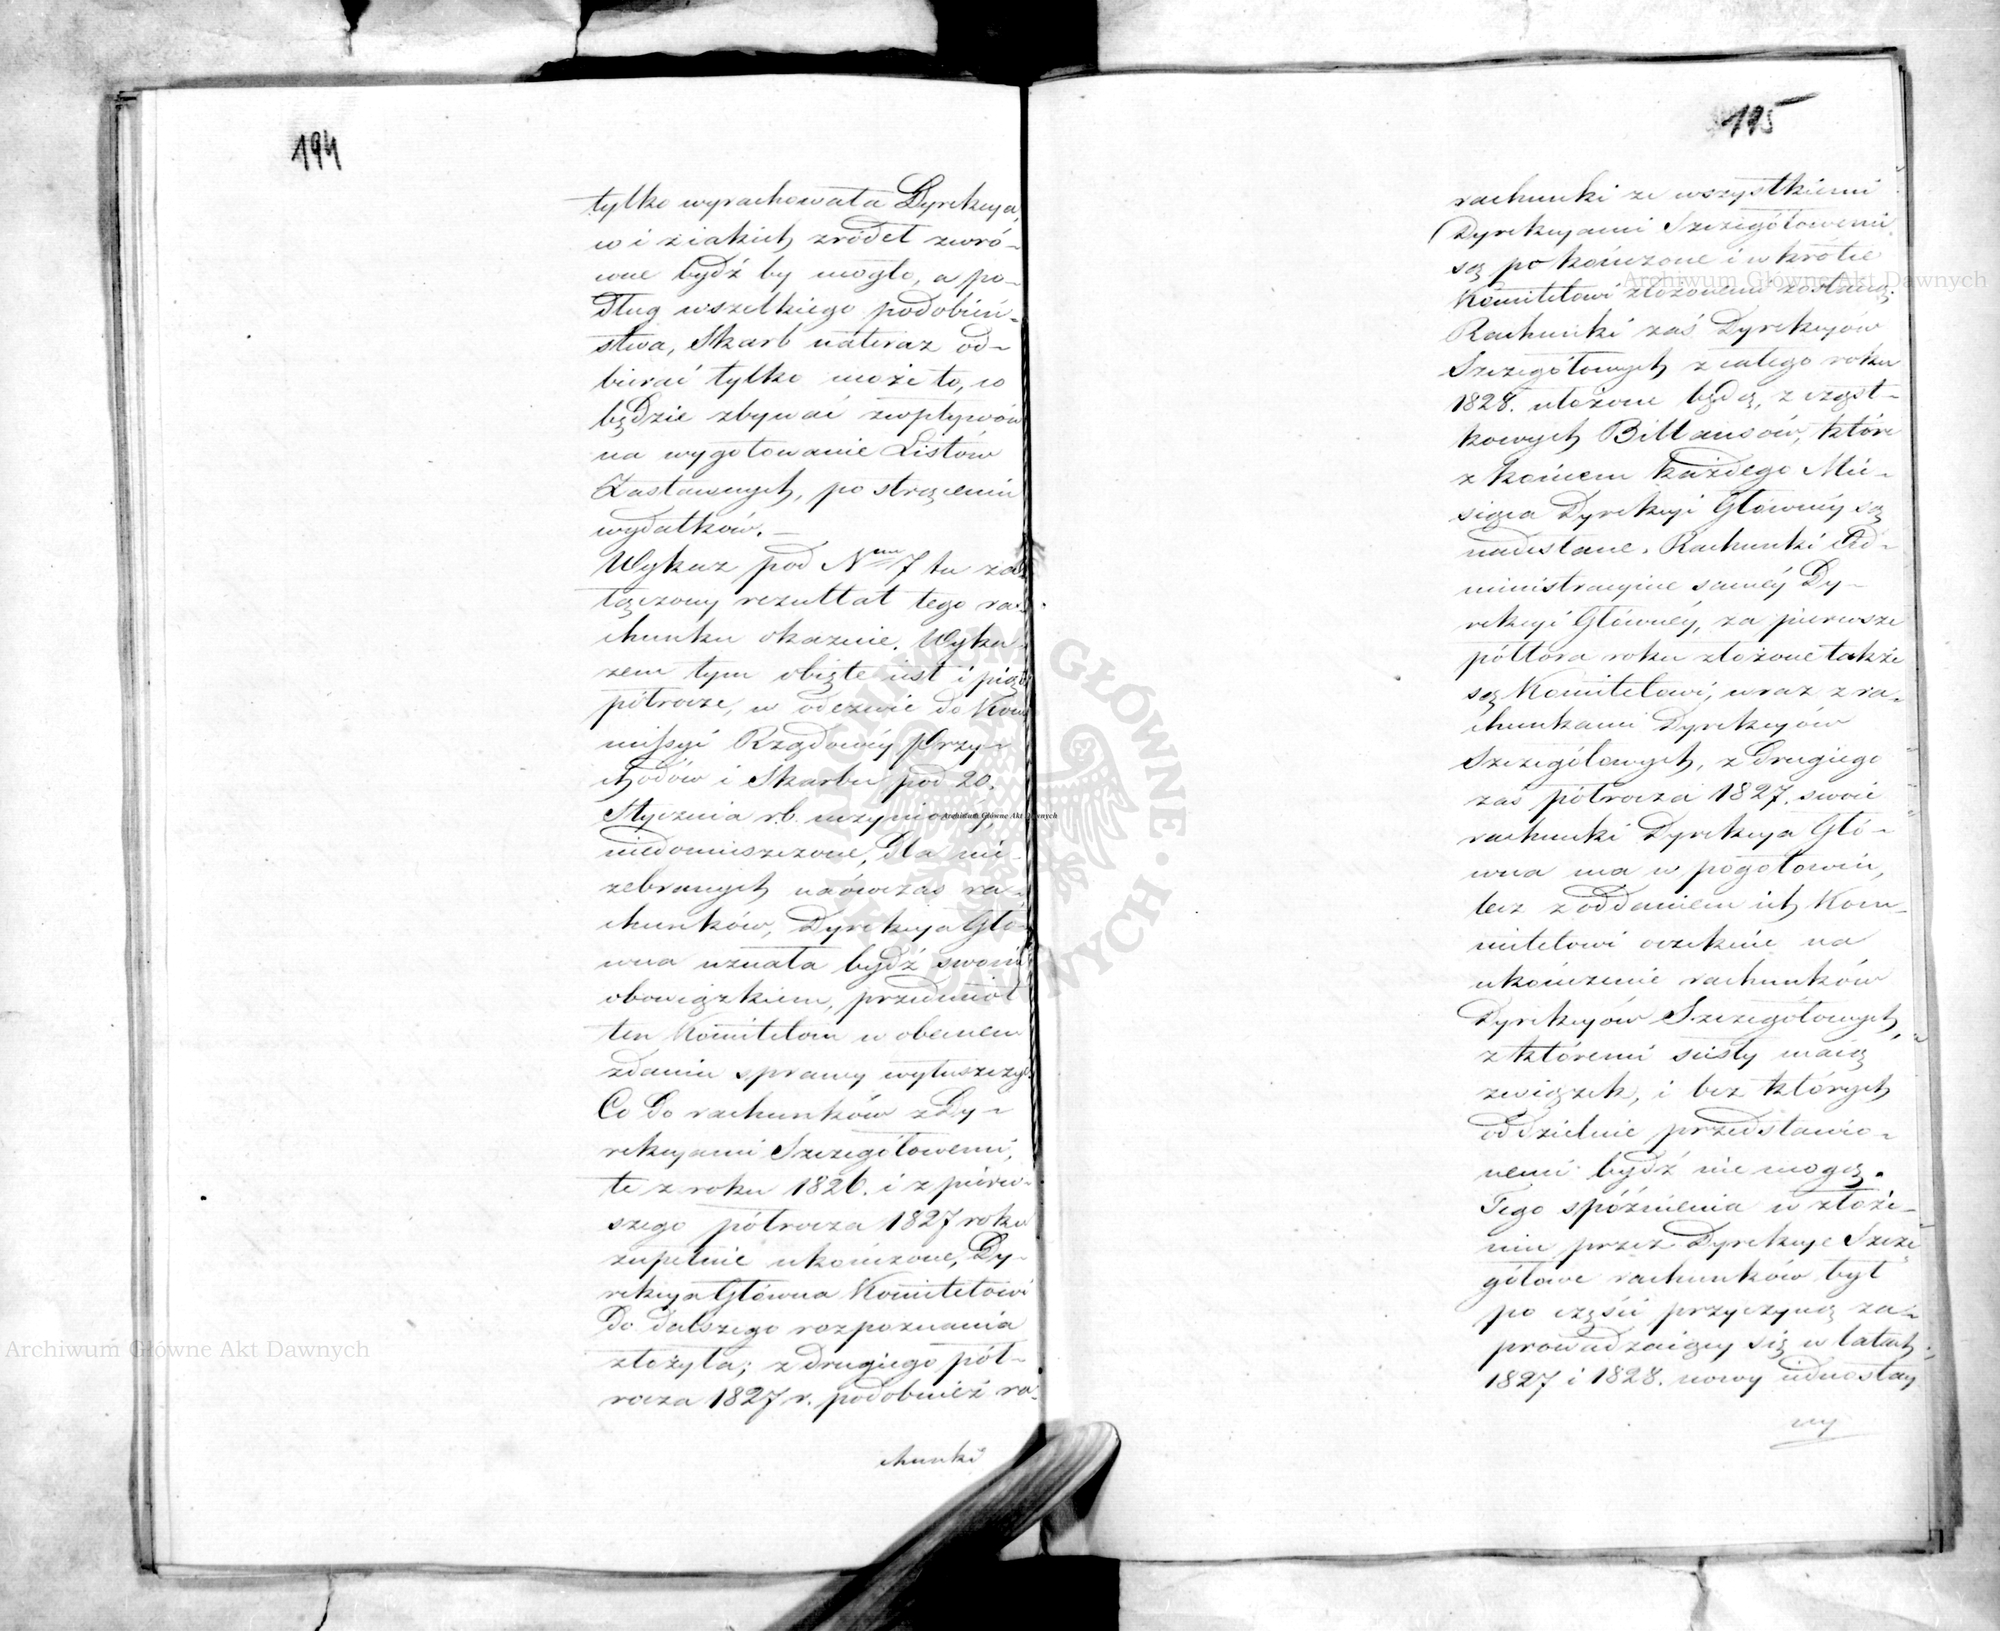 194
tylko wyrachowała Dyrekcya,
co i z iakich źródeł zwró-
cone bydź by mogło, a po-
dług wszelkiego podobień-
stwa, Skarb nateraz od-
bierać tylko może to, co
będzie zbywać z wpływów
na wygotowanie Listów
Zastawnych, po strąceniu
wydatków. –
Wykaz pod Nem 7 tu za-
łączony rezultat tego ra-
chunku okazuie. Wyka-
zem tym obięte iest i piąte
półrocze, w odezwie do Kom-
missyi Rządowéy Przy-
chodów i Skarbu pod 20.
Stycznia r.b. uczynionéy,
niedomieszczone, dla nie-
zebranych naówczas ra-
chunków, Dyrekcya Głó-
wna uznała bydź swoim
obowiązkiem, przedmiot
ten Komitetowi w obecnem
zdaniu sprawy wyłuszczyć.
Co do rachunków z Dy-
rekcyami Szczegółowemi,
te z roku 1826. i z pierw-
szego półrocza 1827 roku
zupełnie ukończone, Dy-
rekcya Główna Komitetowi
do dalszego rozpoznania
złożyła; z drugiego pół-
rocza 1827 r. podobnież ra-
chunki
195
rachunki ze wszystkiemi
Dyrekcyami Szczegółowemi
są pokończone i wkrótce
Komitetowi złożonemi zostaną.
Rachunki zaś Dyrekcyów
Szczegółowych z całego roku
1828. ułożone będą, z cząst-
kowych Billansów, które
z końcem każdego Mie-
siąca Dyrekcyi Głównéy są
nadesłane. Rachunki Ad-
ministracyine saméy Dy-
rekcyi Głównéy, za pierwsze
półtora roku złożone także
są Komitetowi, wraz z ra-
chunkami Dyrekcyów
Szczegółowych, z drugiego
zaś półrocza 1827. swoie
rachunki Dyrekcya Głó-
wna ma w pogotowiu,
lecz z oddaniem ich Kom-
mitetowi oczekuie na
ukończenie rachunków
Dyrekcyów Szczegółowych,
z któremi ścisły maią
związek, i bez których
oddzielnie przedstawio-
nemi bydź nie mogą.
Tego spóźnienia w złoże-
niu przez Dyrekcye Szcze-
gółowe rachunków był
po części przyczyną za-
prowadzaiący się w latach
1827 i 1828. nowy iednostay
ny
Archiwum Główne Akt Dawnych
Archiwum Główne Akt Dawnych
Archiwum Główne Akt Dawnych